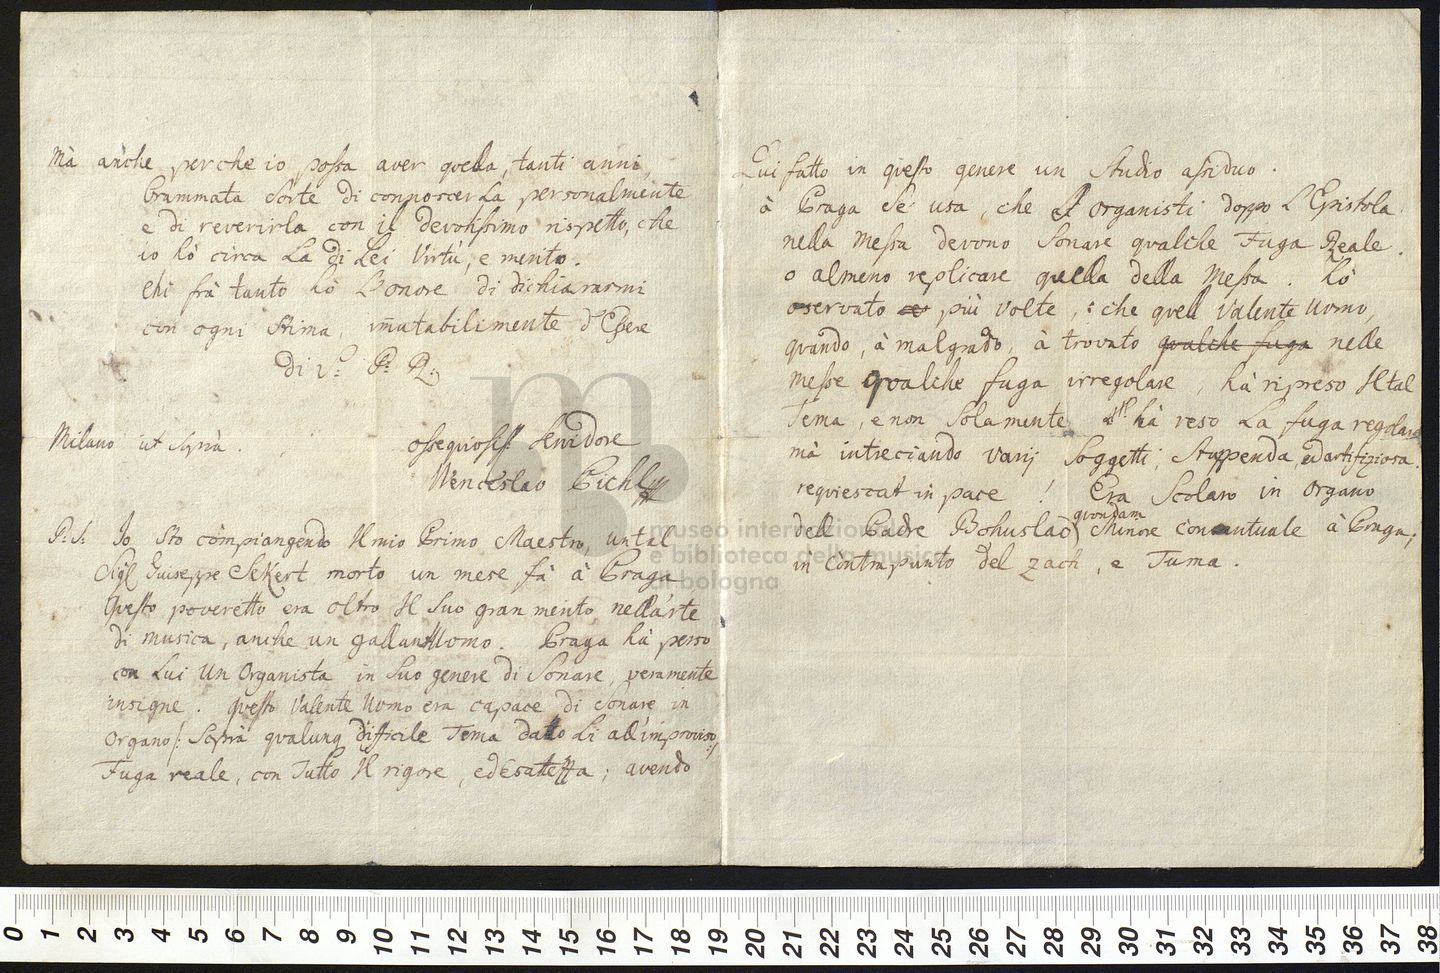 Mà anche perche io possa aver quella, tanti anni,
brammata sorte di connoscerLa personalmente
e di reverirla con il devotissimo rispetto, che
io hò circa La di Lei Virtù, e merito.
Chi frà tanto hò L'onore di dichiararmi
con ogni stima, immutabilimente d'Essere
di V: P: R:
Milano ut suprà.
ossequiosiss Servidore
Wenceslao Pichl
P:S: Io sto compiangendo Il mio Primo Maestro, un tal
Sigl Guiseppe Sekert morto un mese fà à Praga
Questo poveretto era oltro Il suo gran merito nell'arte
di musica, anche un gallantUomo. Praga hà perso
con Lui Un Organista in Suo genere di Sonare, veramente
insigne. Questo Valente Uomo era capace di Sonare in
Organo /: Soprà qualunq difficile Tema datto Li all'improviso :/
Fuga reale, con Tutto Il rigore, ed Esatezza; avendo
Lui fatto in questo genere un Studio assiduo.
à Praga Se usa, che gl organisti doppo L'Epistola
nella Messa devono Sonare qualche Fuga Reale.
o almeno replicare quella della Messa. hò
osservato più volte, che quell Valente Uomo,
quando, à malgrado, à trovato qualche fuga nelle
Messe qualche fuga irregolare, hà ripreso Il tal
Tema, e non Solamente hà reso La fuga regolare
mà intreciando varij Soggetti, Stuppenda, ed artifiziosa.
requiescat in pace! Era Scolaro in Organo
dell Padre Bohuslao quondam Minore conventuale à Praga;
in Contrapunto del Zach, e Tuma.
museo internazionale
e biblioteca della musica
di bologna
0 1 2 3 4 5 6 7 8 9 10 11 12 13 14 15 16 17 18 19 20 21 22 23 24 25 26 27 28 29 30 31 32 33 34 35 36 37 38